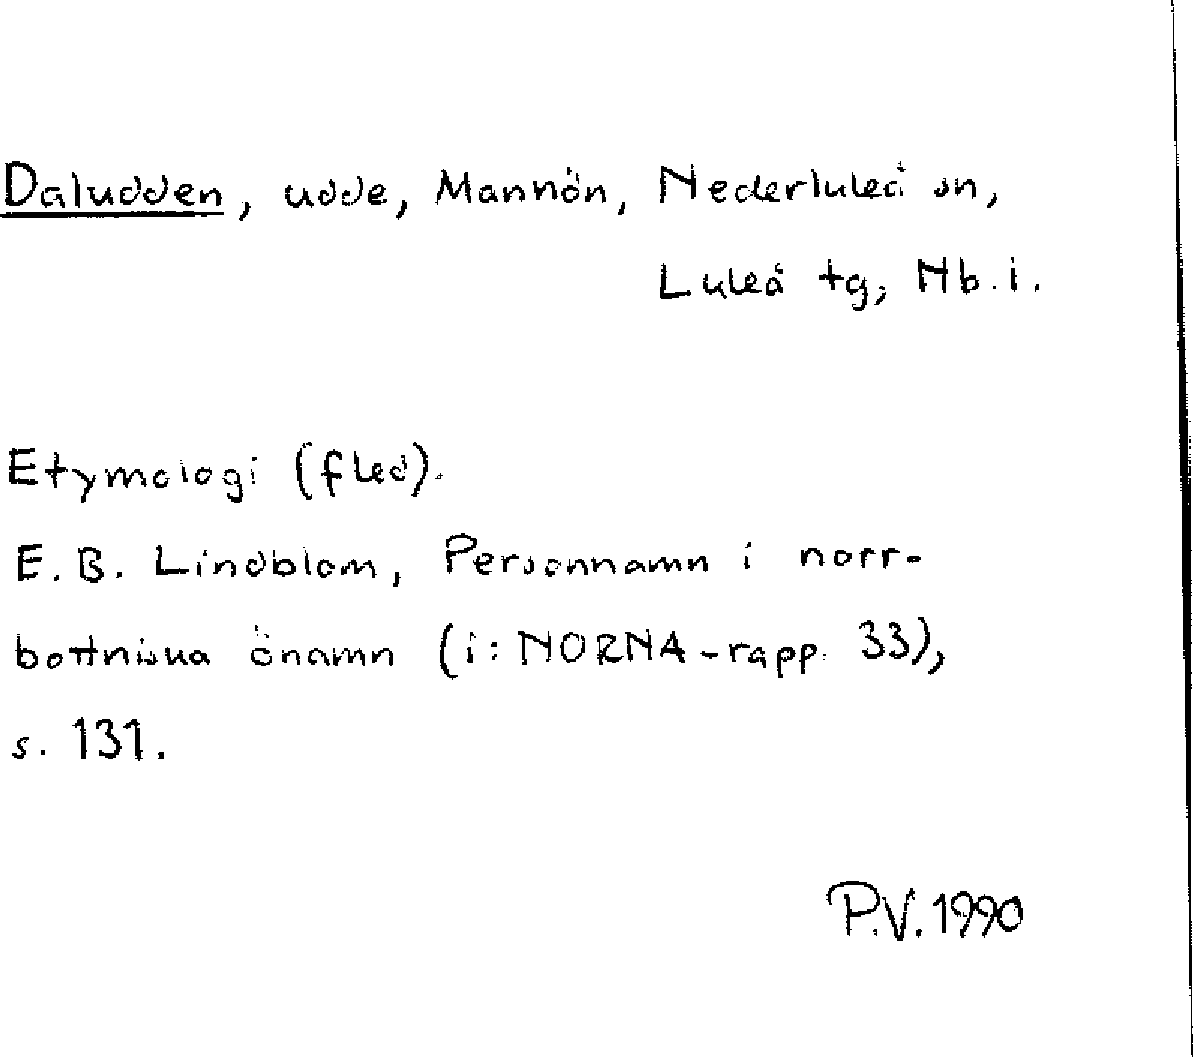 Daludden, udde, Mannön, Nederluleå sn,
Luleå tg, Nb.i.
Etymologi (fled).
E.B. Lindblom, Personnamn i norr-
bottniska önamn (i: NORNA-rapp. 33),
s. 131.
P.V. 1990